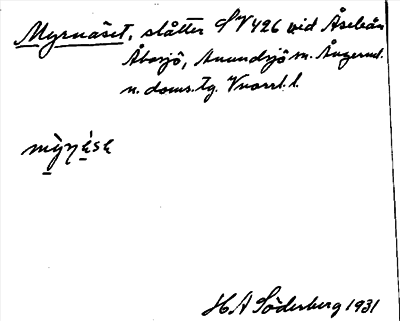 Myrnäset, slåtter SV 426 vid Åseleån
Åbosjö, Anundsjö sn. Ångerml.
n. doms. tg. Vnorrl. l.
mỳṇése
H A Söderberg 1931